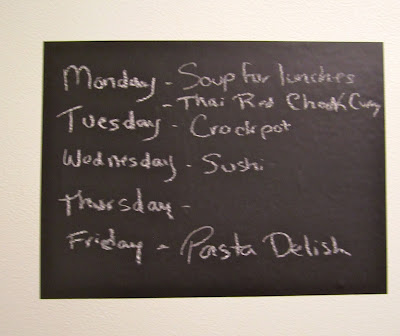 Monday - Soup for lunches
- Thai Red Chook Curry
Tuesday - Crockpot
Wednesday - Sushi
Thursday -
Friday - Pasta Delish